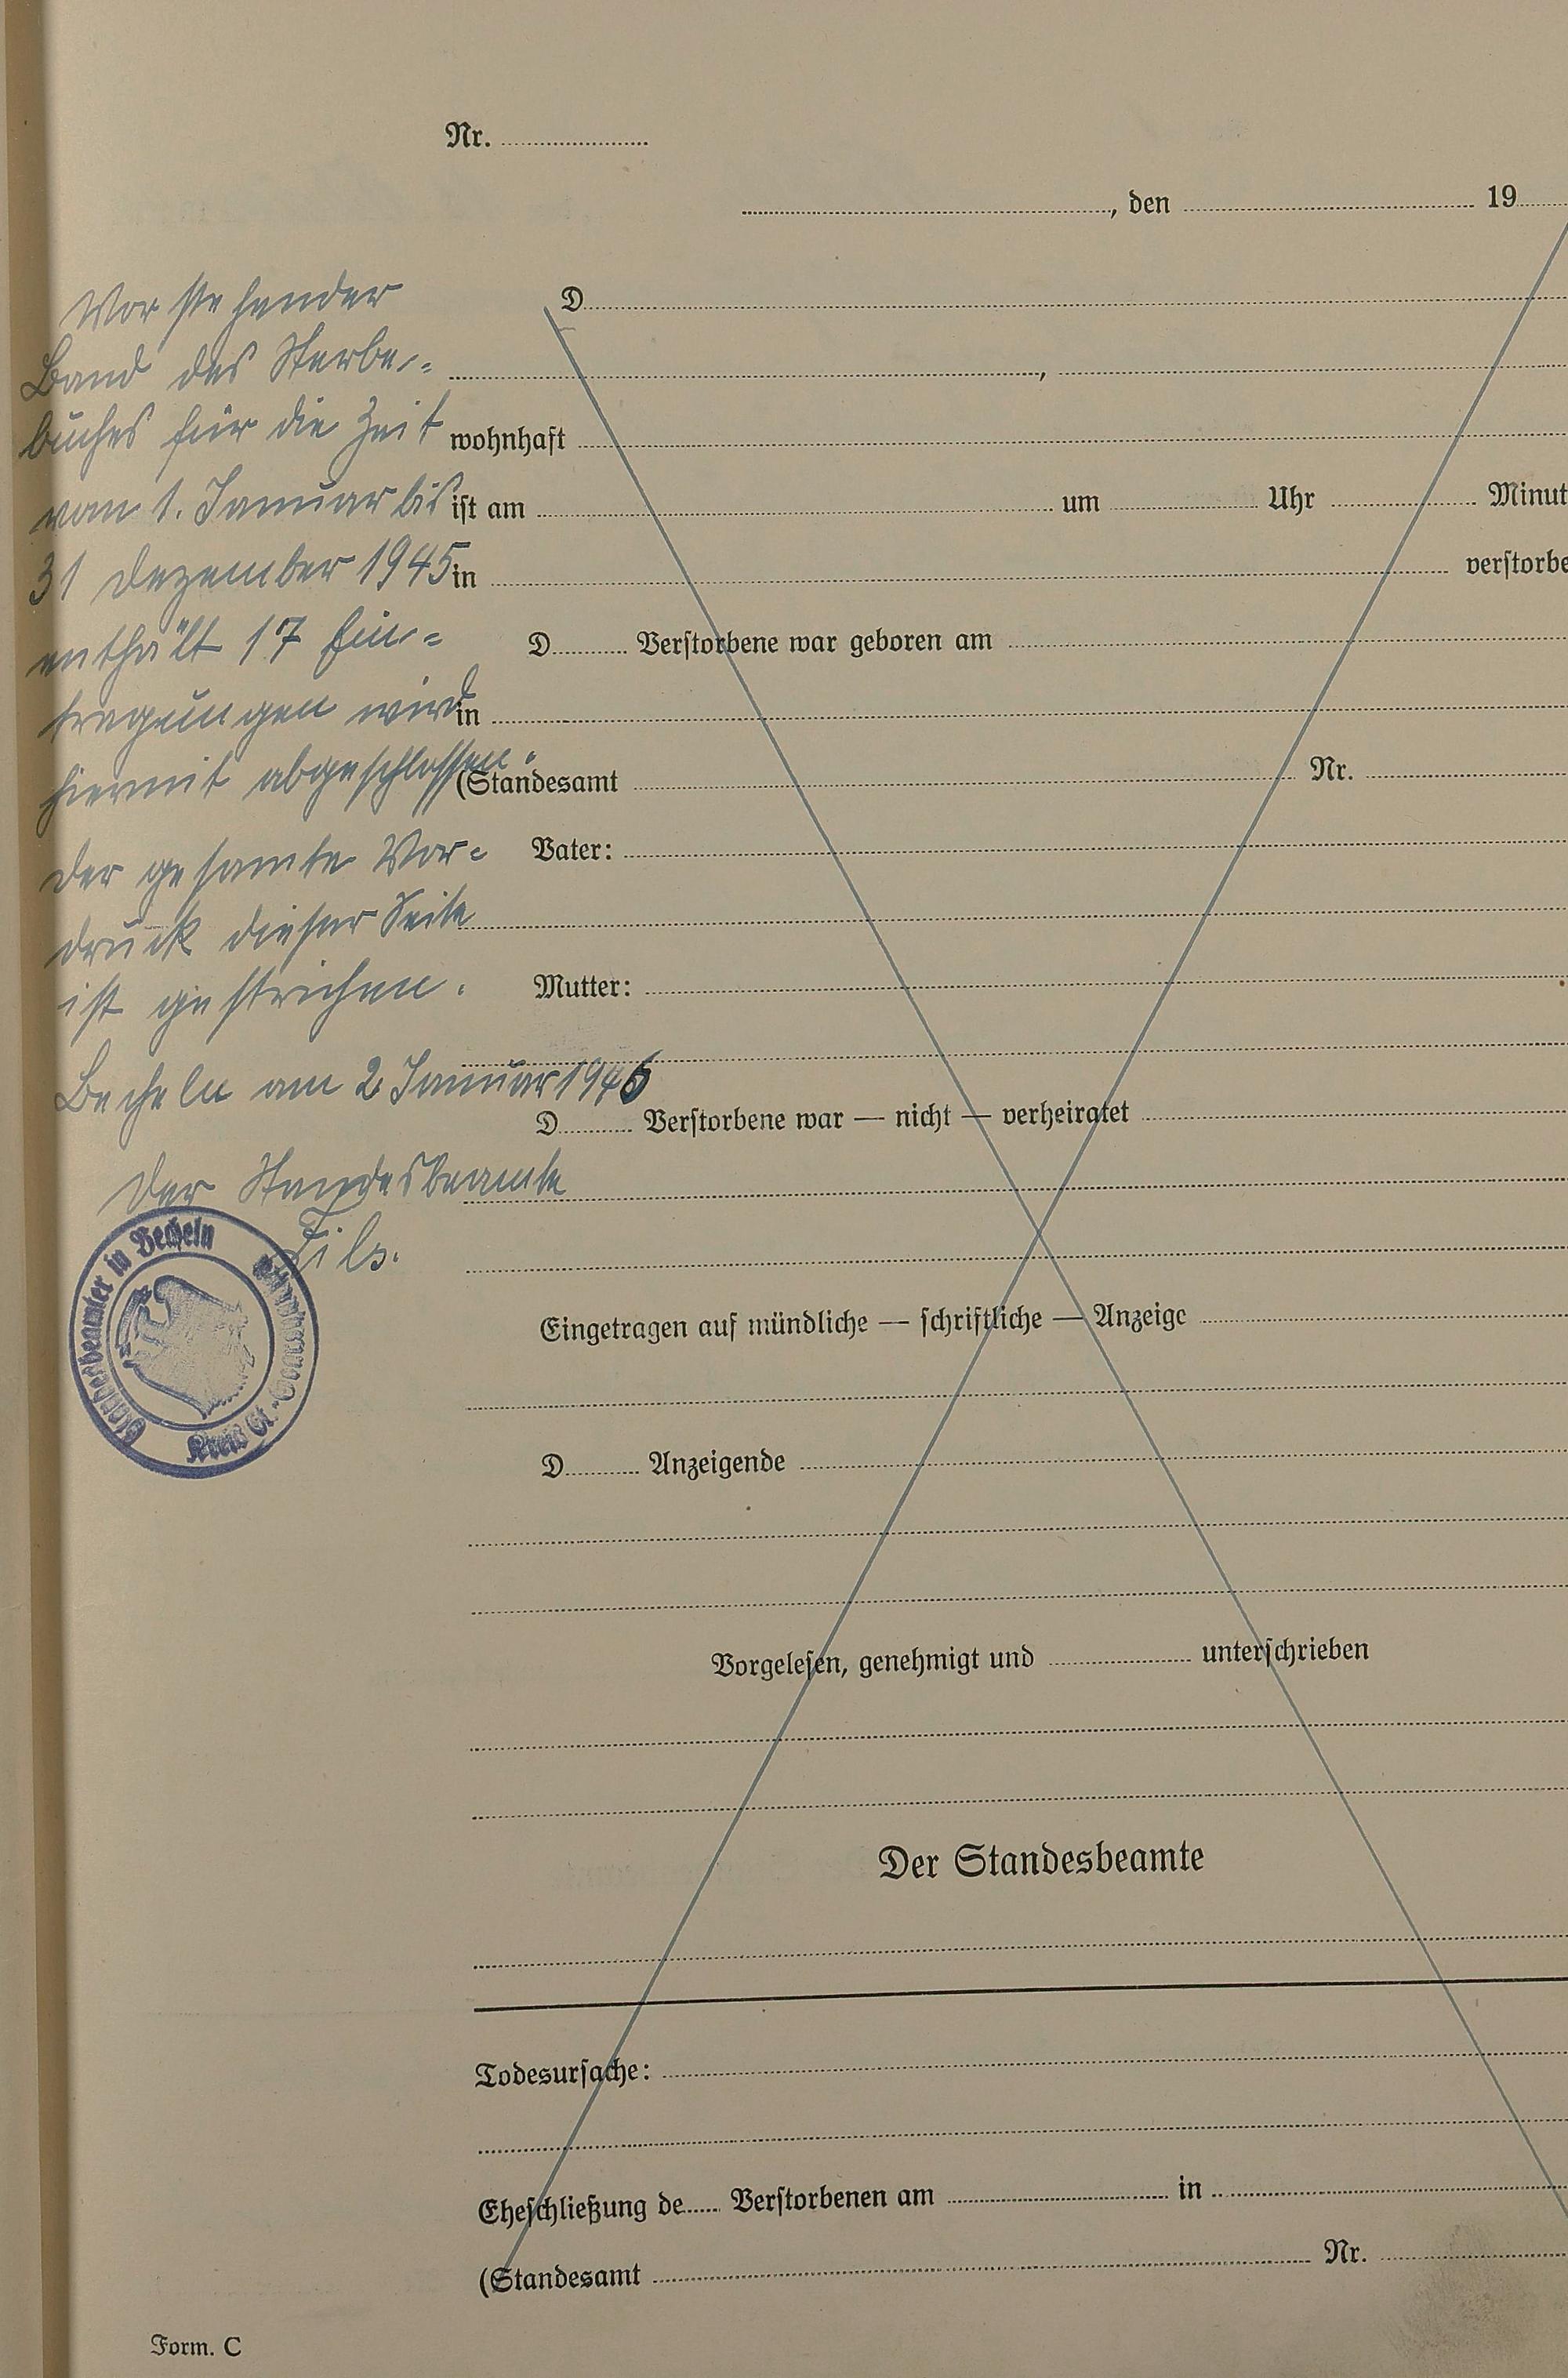 Nr.
, den 19
Vorstehender
Band des Sterbe-
buches für die Zeit
vom 1. Januar bis
31 Dezember 1945
enthält 17 Ein-
tragungen wird
hiermit abgeschlossen.
Der gesamte Vor-
druck dieser Seite
ist gestrichen.
Becheln am 2. Januar 1946
Der Standesbeamte
Standesbeamter in Becheln
Kreis St.-Goarshausen
D
,
wohnhaft
ist am um Uhr Minut
in verstorbe
D Verstorbene war geboren am
in
(Standesamt Nr.
Vater:
Mutter:
D Verstorbene war — nicht — verheiratet
Eingetragen auf mündliche — schriftliche — Anzeige
D Anzeigende
Vorgelesen, genehmigt und unterschrieben
Der Standesbeamte
Todesursache:
Eheschließung de Verstorbenen am in
(Standesamt Nr.
Form. C